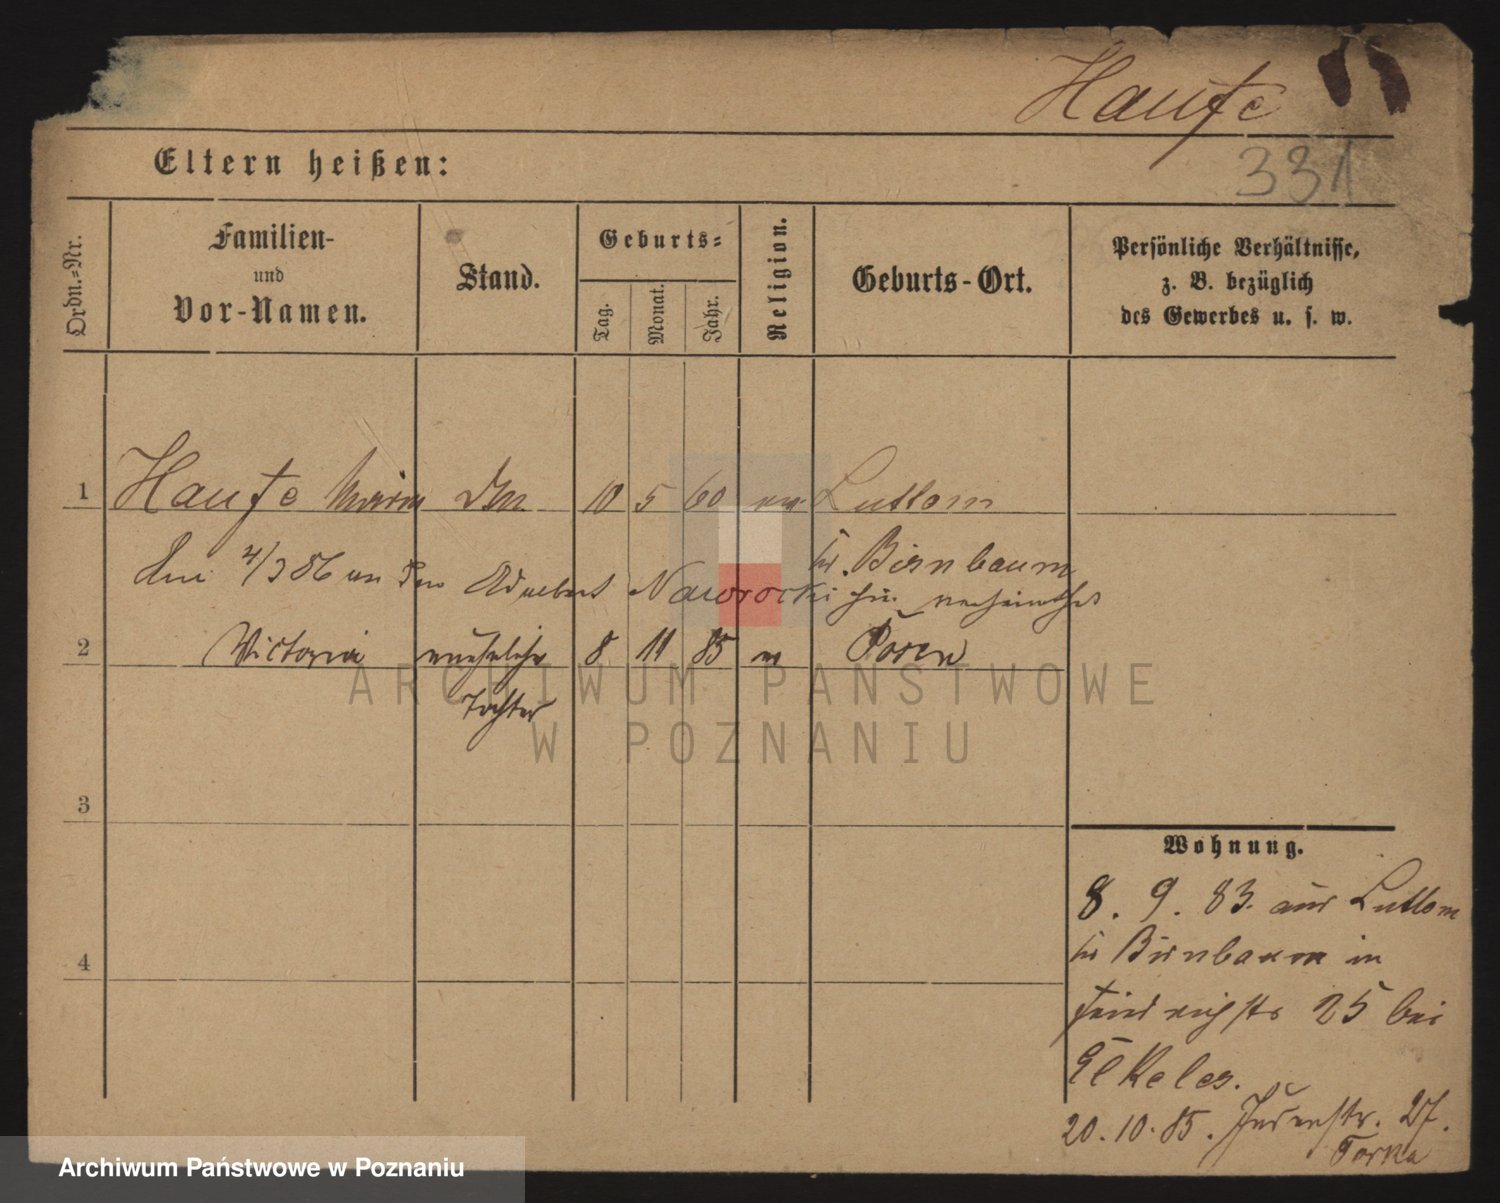 Haufe
331
Eltern heißen:
Ordn.=Nr.
Familien-
und
Vor-Namen.
Stand.
Geburts=
Tag.
Monat.
Jahr.
Religion.
Geburts-Ort.
Persönliche Verhältnisse,
z. B. bezüglich
des Gewerbes u. s. w.
1 Haufe Maria 10 5 60 Luttom
Kr. Birnbaum
4/3 86 an den Adalbert Nawrocki hier verheirathet
2 Victoria uneheliche 8 11 85 Posen
Tochter
ARCHIWUM PAŃSTWOWE
W POZNANIU
3
4
Wohnung.
8. 9. 83. aus Luttom
Kr Birnbaum in
Friedrichstr 25 bei
Elkeles.
20. 10. 85. Judenstr. 27.
Torka
Archiwum Państwowe w Poznaniu